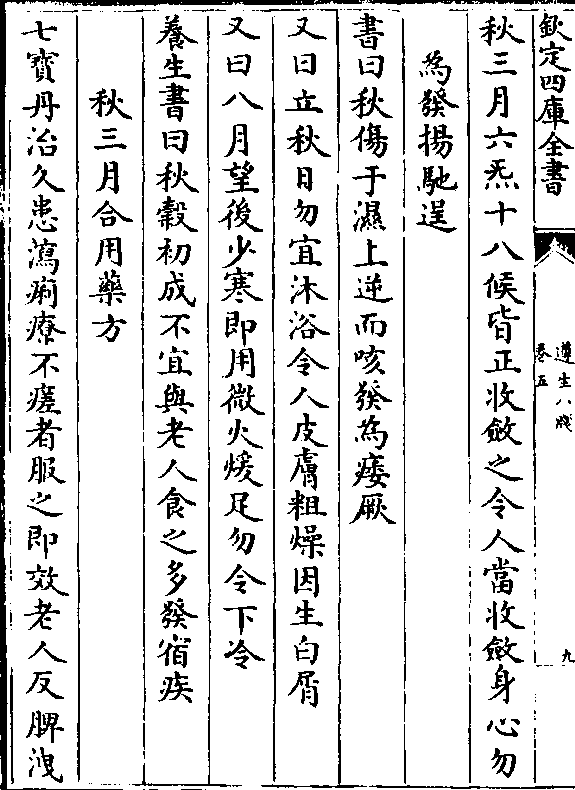 欽定四庫全書
遵生八牋
卷五
九
秋三月六炁十八候皆正收斂之令人當收斂身心勿
為發揚馳逞
書曰秋傷于濕上逆而咳發為痿厥
又曰立秋日勿宜沐浴令人皮膚粗燥因生白屑
又曰八月望後少寒即用微火煖足勿令下冷
養生書曰秋穀初成不宜與老人食之多發宿疾
秋三月合用藥方
七寶丹治久患瀉痢療不瘥者服之即效老人反脾洩